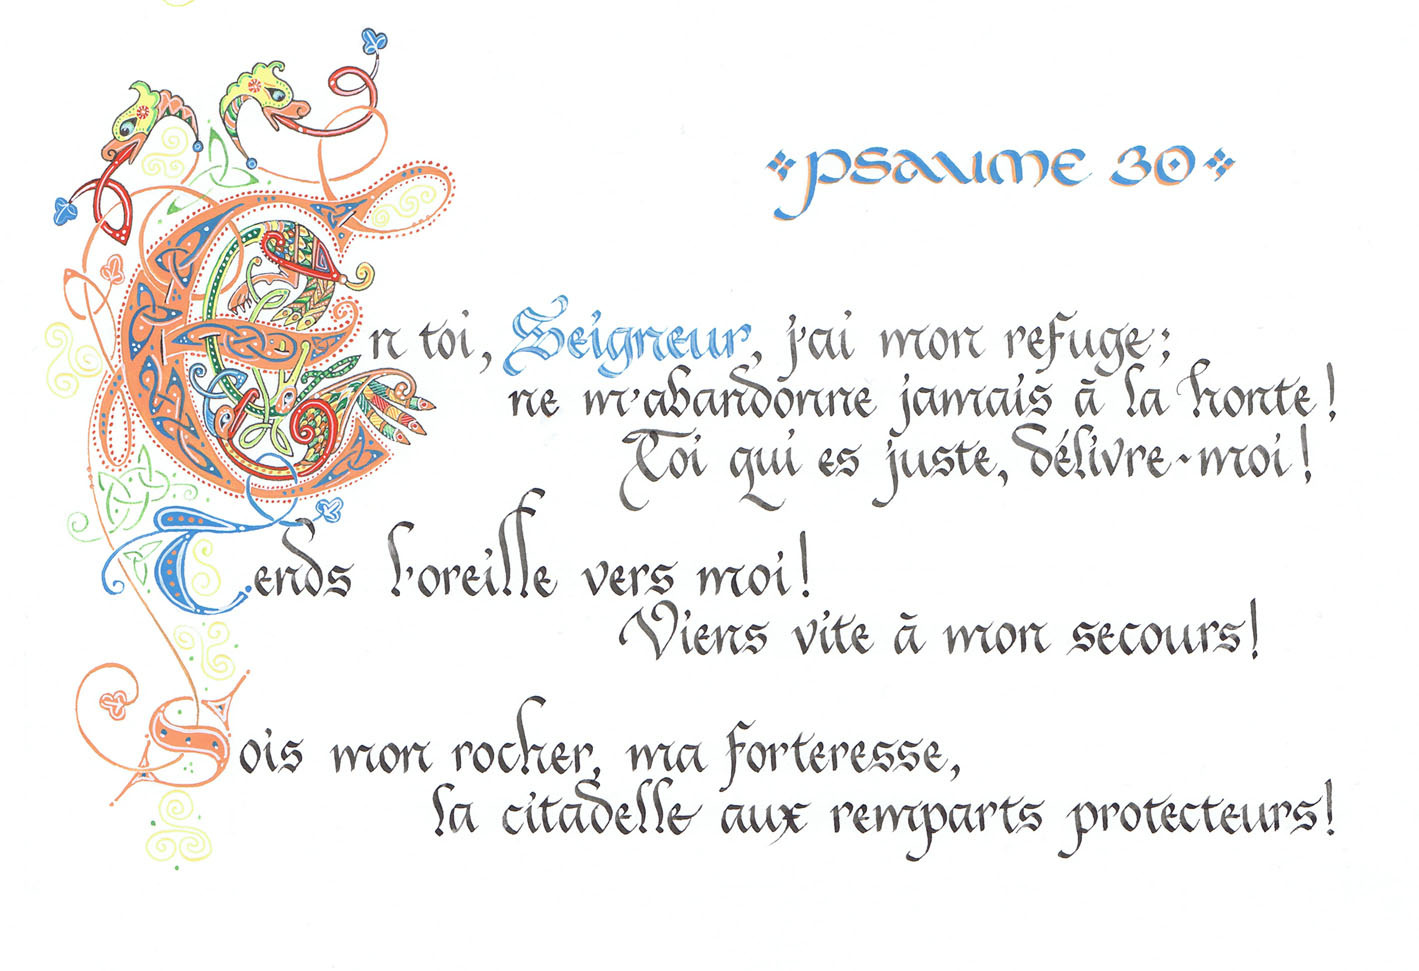 Psaume 30
En toi, Seigneur, j'ai mon refuge;
ne m'abandonne jamais à la honte!
Toi qui es juste, délivre-moi!
Tends l'oreille vers moi!
Viens vite à mon secours!
Sois mon rocher, ma forteresse,
la citadelle aux remparts protecteurs!